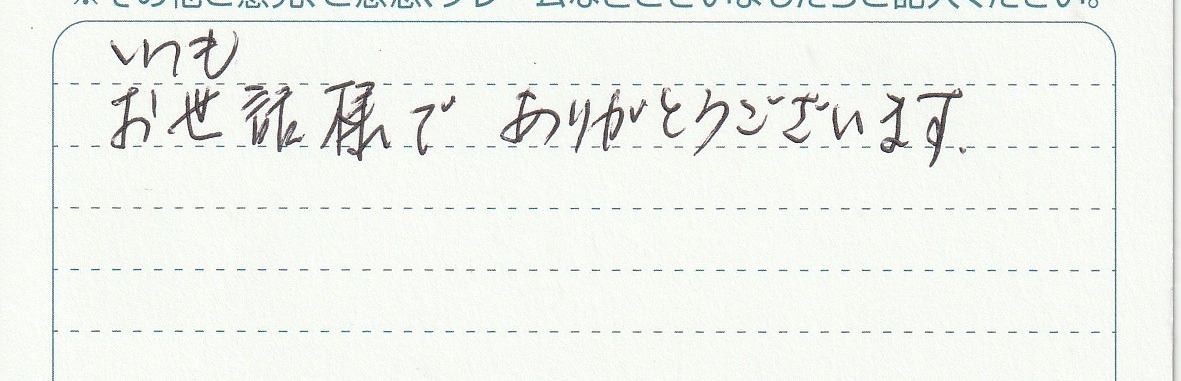 ※その他ご感想、ご意見、クレームなどございましたらご記入ください。
いつも
お世話様で ありがとうございます.